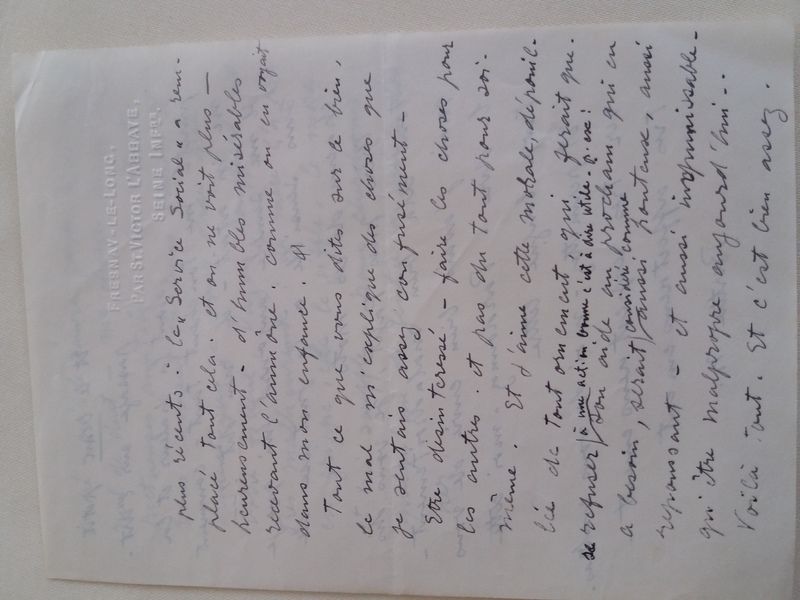 FRESNAY-LE-LONG,
PAR ST VICTOR L'ABBAYE,
SEINE INFRE.
plus récents : le « Service Social » a rem-
placé tout cela. et on ne voit plus —
heureusement - d'humbles misérables
recevant l'aumône. comme on en voyait
dans mon enfance.
Tout ce que vous dites sur le bien,
le mal m'explique des choses que
je sentais assez confusément -
Etre désintéressé - faire les choses pour
les autres. et pas du tout pour soi-
même. Et j'aime cette morale, dépouil-
lée de tout ornement, qui ferait que.
se refuser / à une action bonne c'est à dire utile -
son aide au prochain qui en
a besoin, serait / considéré comme / aussi honteux, aussi
repoussant - et aussi inadmissible -
qu'être malpropre aujourd'hui..
Voilà tout. Et c'est bien assez.